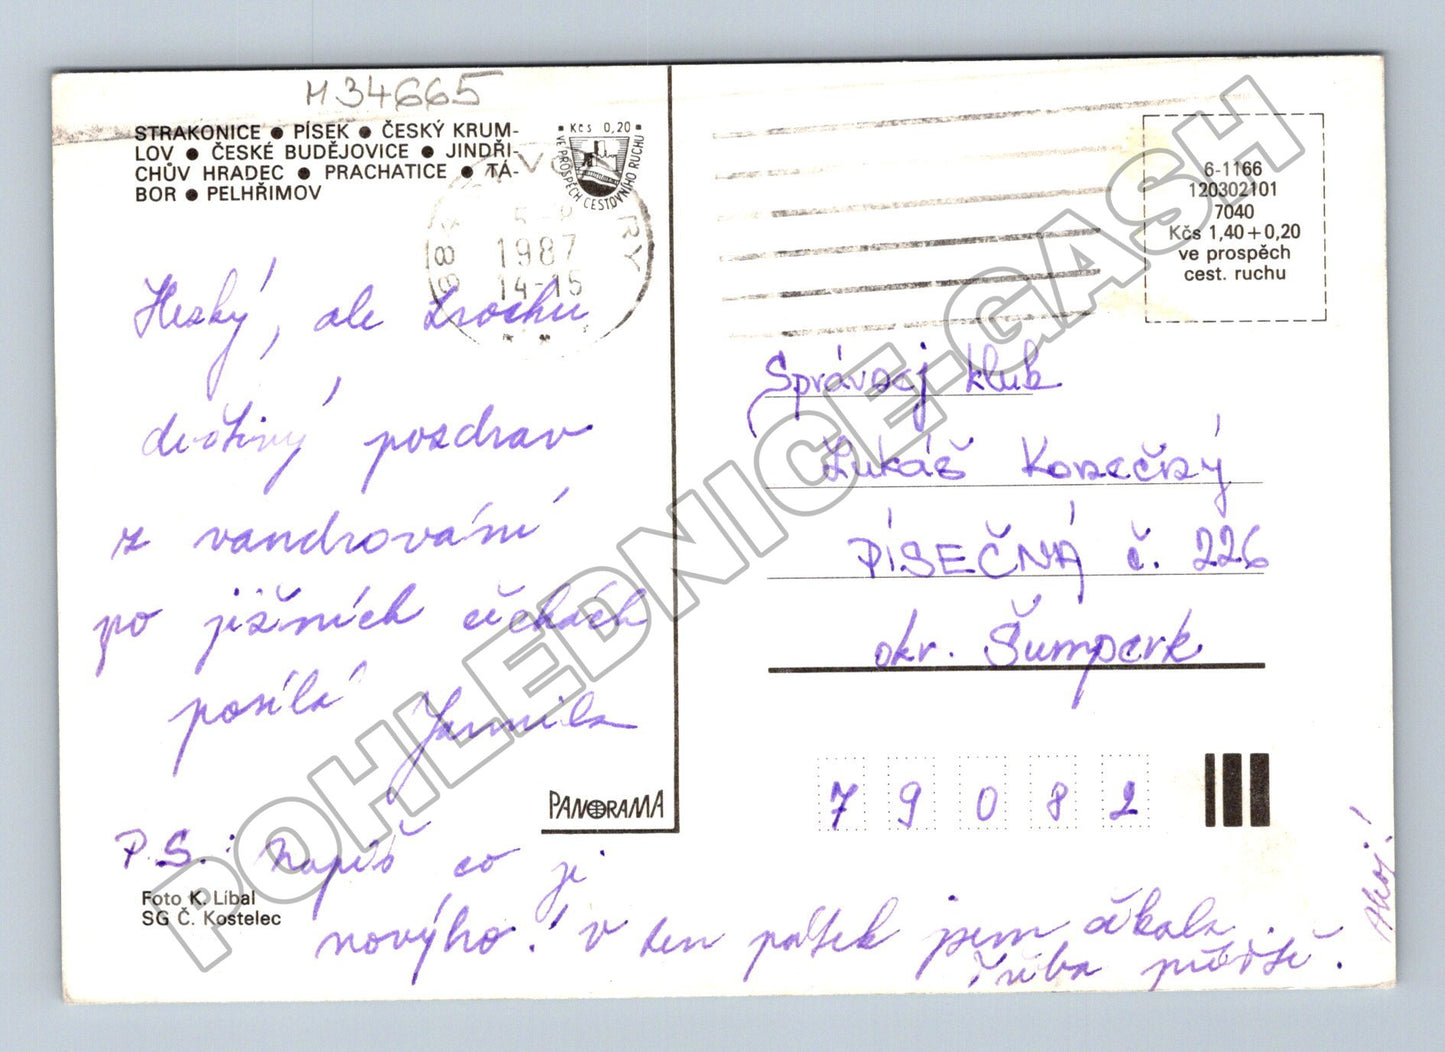 M34665
STRAKONICE ● PÍSEK ● ČESKÝ KRUM-
LOV ● ČESKÉ BUDĚJOVICE ● JINDŘI-
CHŮV HRADEC ● PRACHATICE ● TÁ-
BOR ● PELHŘIMOV
Kčs 0,20
VE PROSPĚCH CESTOVNÍHO RUCHU
1987
14-15
6-1166
120302101
7040
Kčs 1,40 + 0,20
ve prospěch
cest. ruchu
Hezký, ale trochu
dvotivý pozdrav
z vandrování
po jižních čechách
posílá Jarmila
Správnej klub
Lukáš Konečný
PÍSEČNÁ č. 226
okr. Šumperk
79082
PANORAMA
P.S.: napiš co je
nového! V ten pátek jsem čekala.
Třeba příště.
Ahoj!
Foto K. Líbal
SG Č. Kostelec
POHLEDNICE-GASH